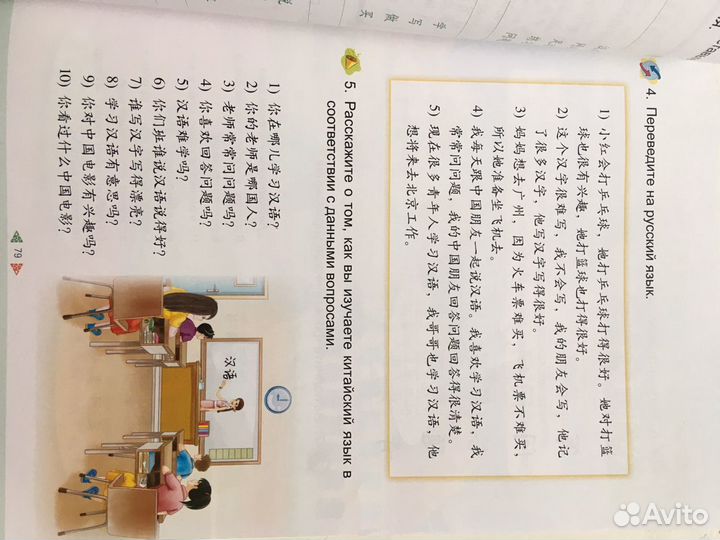 4. Переведите на русский язык.
1) 小红会打乒乓球，她打乒乓球打得很好。她对打篮
球也很有兴趣，她打篮球也打得很好。
2) 这个汉字很难写，我不会写，我的朋友会写，他记
了很多汉字，他写汉字写得很好。
3) 妈妈想去广州，因为火车票难买，飞机票不难买，
所以她准备坐飞机去。
4) 我每天跟中国朋友一起说汉语。我喜欢学习汉语，我
常常问问题，我的中国朋友回答问题回答得很清楚。
5) 现在很多青年人学习汉语，我哥哥也学习汉语，他
想将来去北京工作。
5. Расскажите о том, как вы изучаете китайский язык в
соответствии с данными вопросами.
1) 你在哪儿学习汉语？
2) 你的老师是哪国人？
3) 老师常常问问题吗？
4) 你喜欢回答问题吗？
5) 汉语难学吗？
6) 你们班谁说汉语说得好？
7) 谁写汉字写得漂亮？
8) 学习汉语有意思吗？
9) 你对中国电影有兴趣吗？
10) 你看过什么中国电影？
汉语
79
Avito